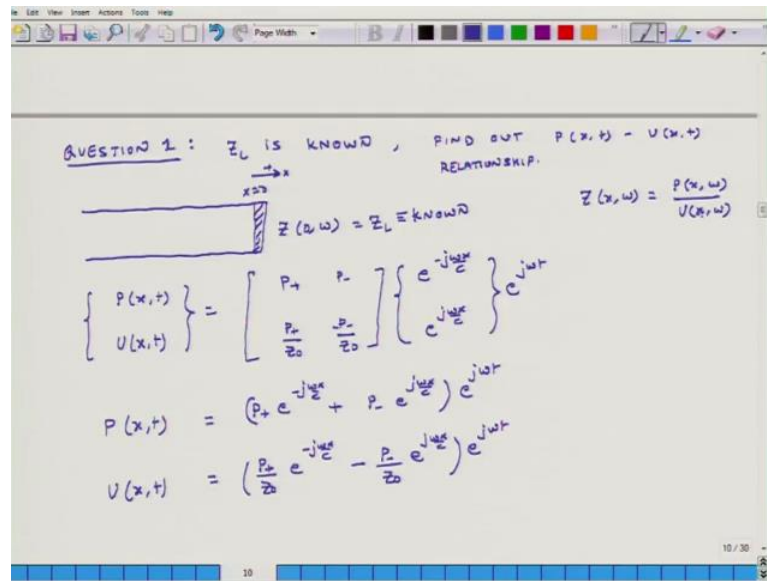 File Edit View Insert Actions Tools Help
Page Width
QUESTION 1 : Z_L IS KNOWN , FIND OUT P(x,t) - U(x,t)
RELATIONSHIP.
→x
x=0
Z(0,ω) = Z_L ≡ KNOWN
Z(x,ω) = P(x,ω) / U(x,ω)
{ P(x,t) U(x,t) } = [ P+ P- ; P+/Z0 -P-/Z0 ] { e^(-jωx/c) e^(jωx/c) } e^(jωt)
P(x,t) = (P+ e^(-jωx/c) + P- e^(jωx/c)) e^(jωt)
U(x,t) = (P+/Z0 e^(-jωx/c) - P-/Z0 e^(jωx/c)) e^(jωt)
10 / 30
10